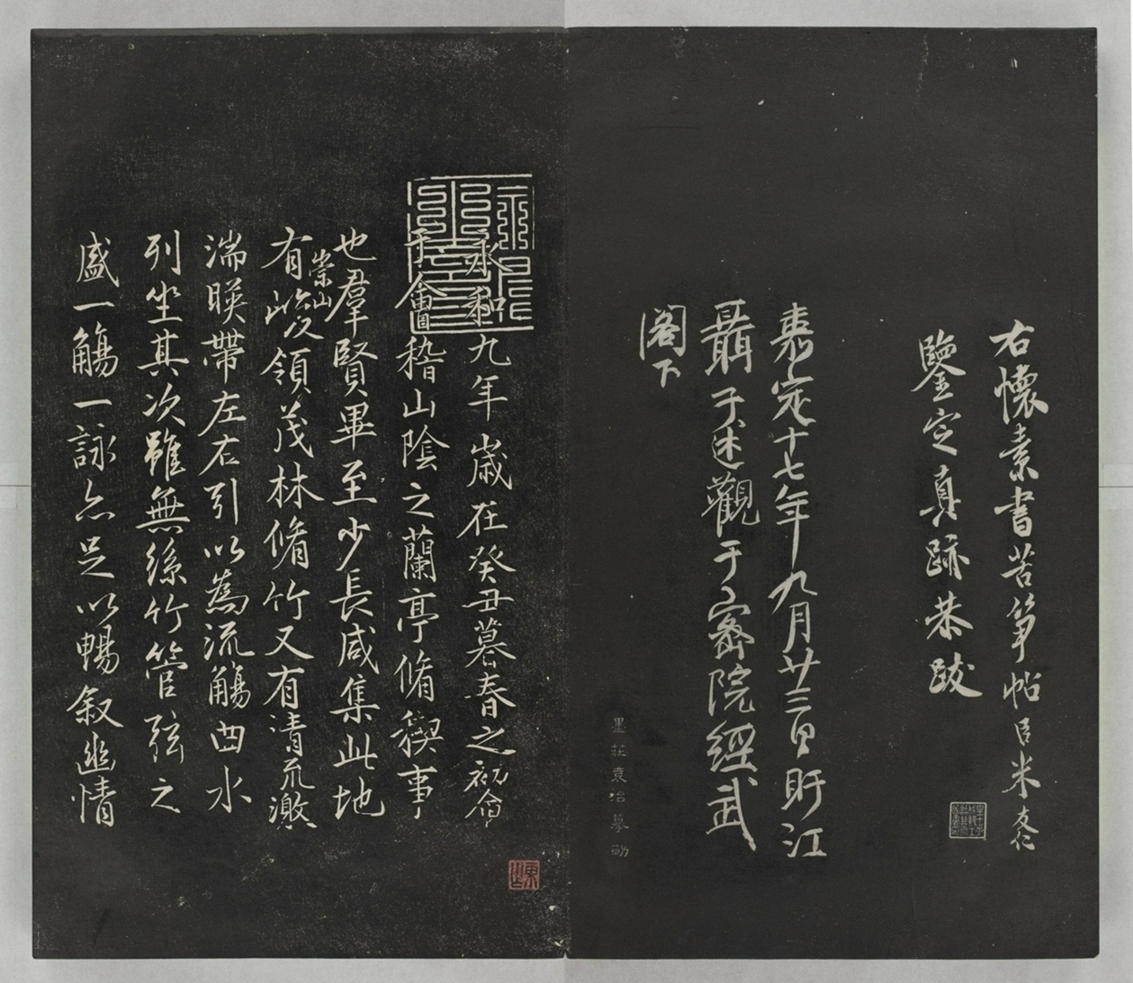 右懷素書苦筍帖臣米友仁
鑒定真跡恭跋
嘉定十七年九月廿三日盱江
聶子述觀于密院經武
閣下
墨莊袁治摹勒
永和九年歲在癸丑暮春之初會
于會稽山陰之蘭亭脩稧事
也羣賢畢至少長咸集此地
崇山
有峻領茂林脩竹又有清流激
湍暎帶左右引以為流觴曲水
列坐其次雖無絲竹管弦之
盛一觴一詠亦足以暢叙幽情